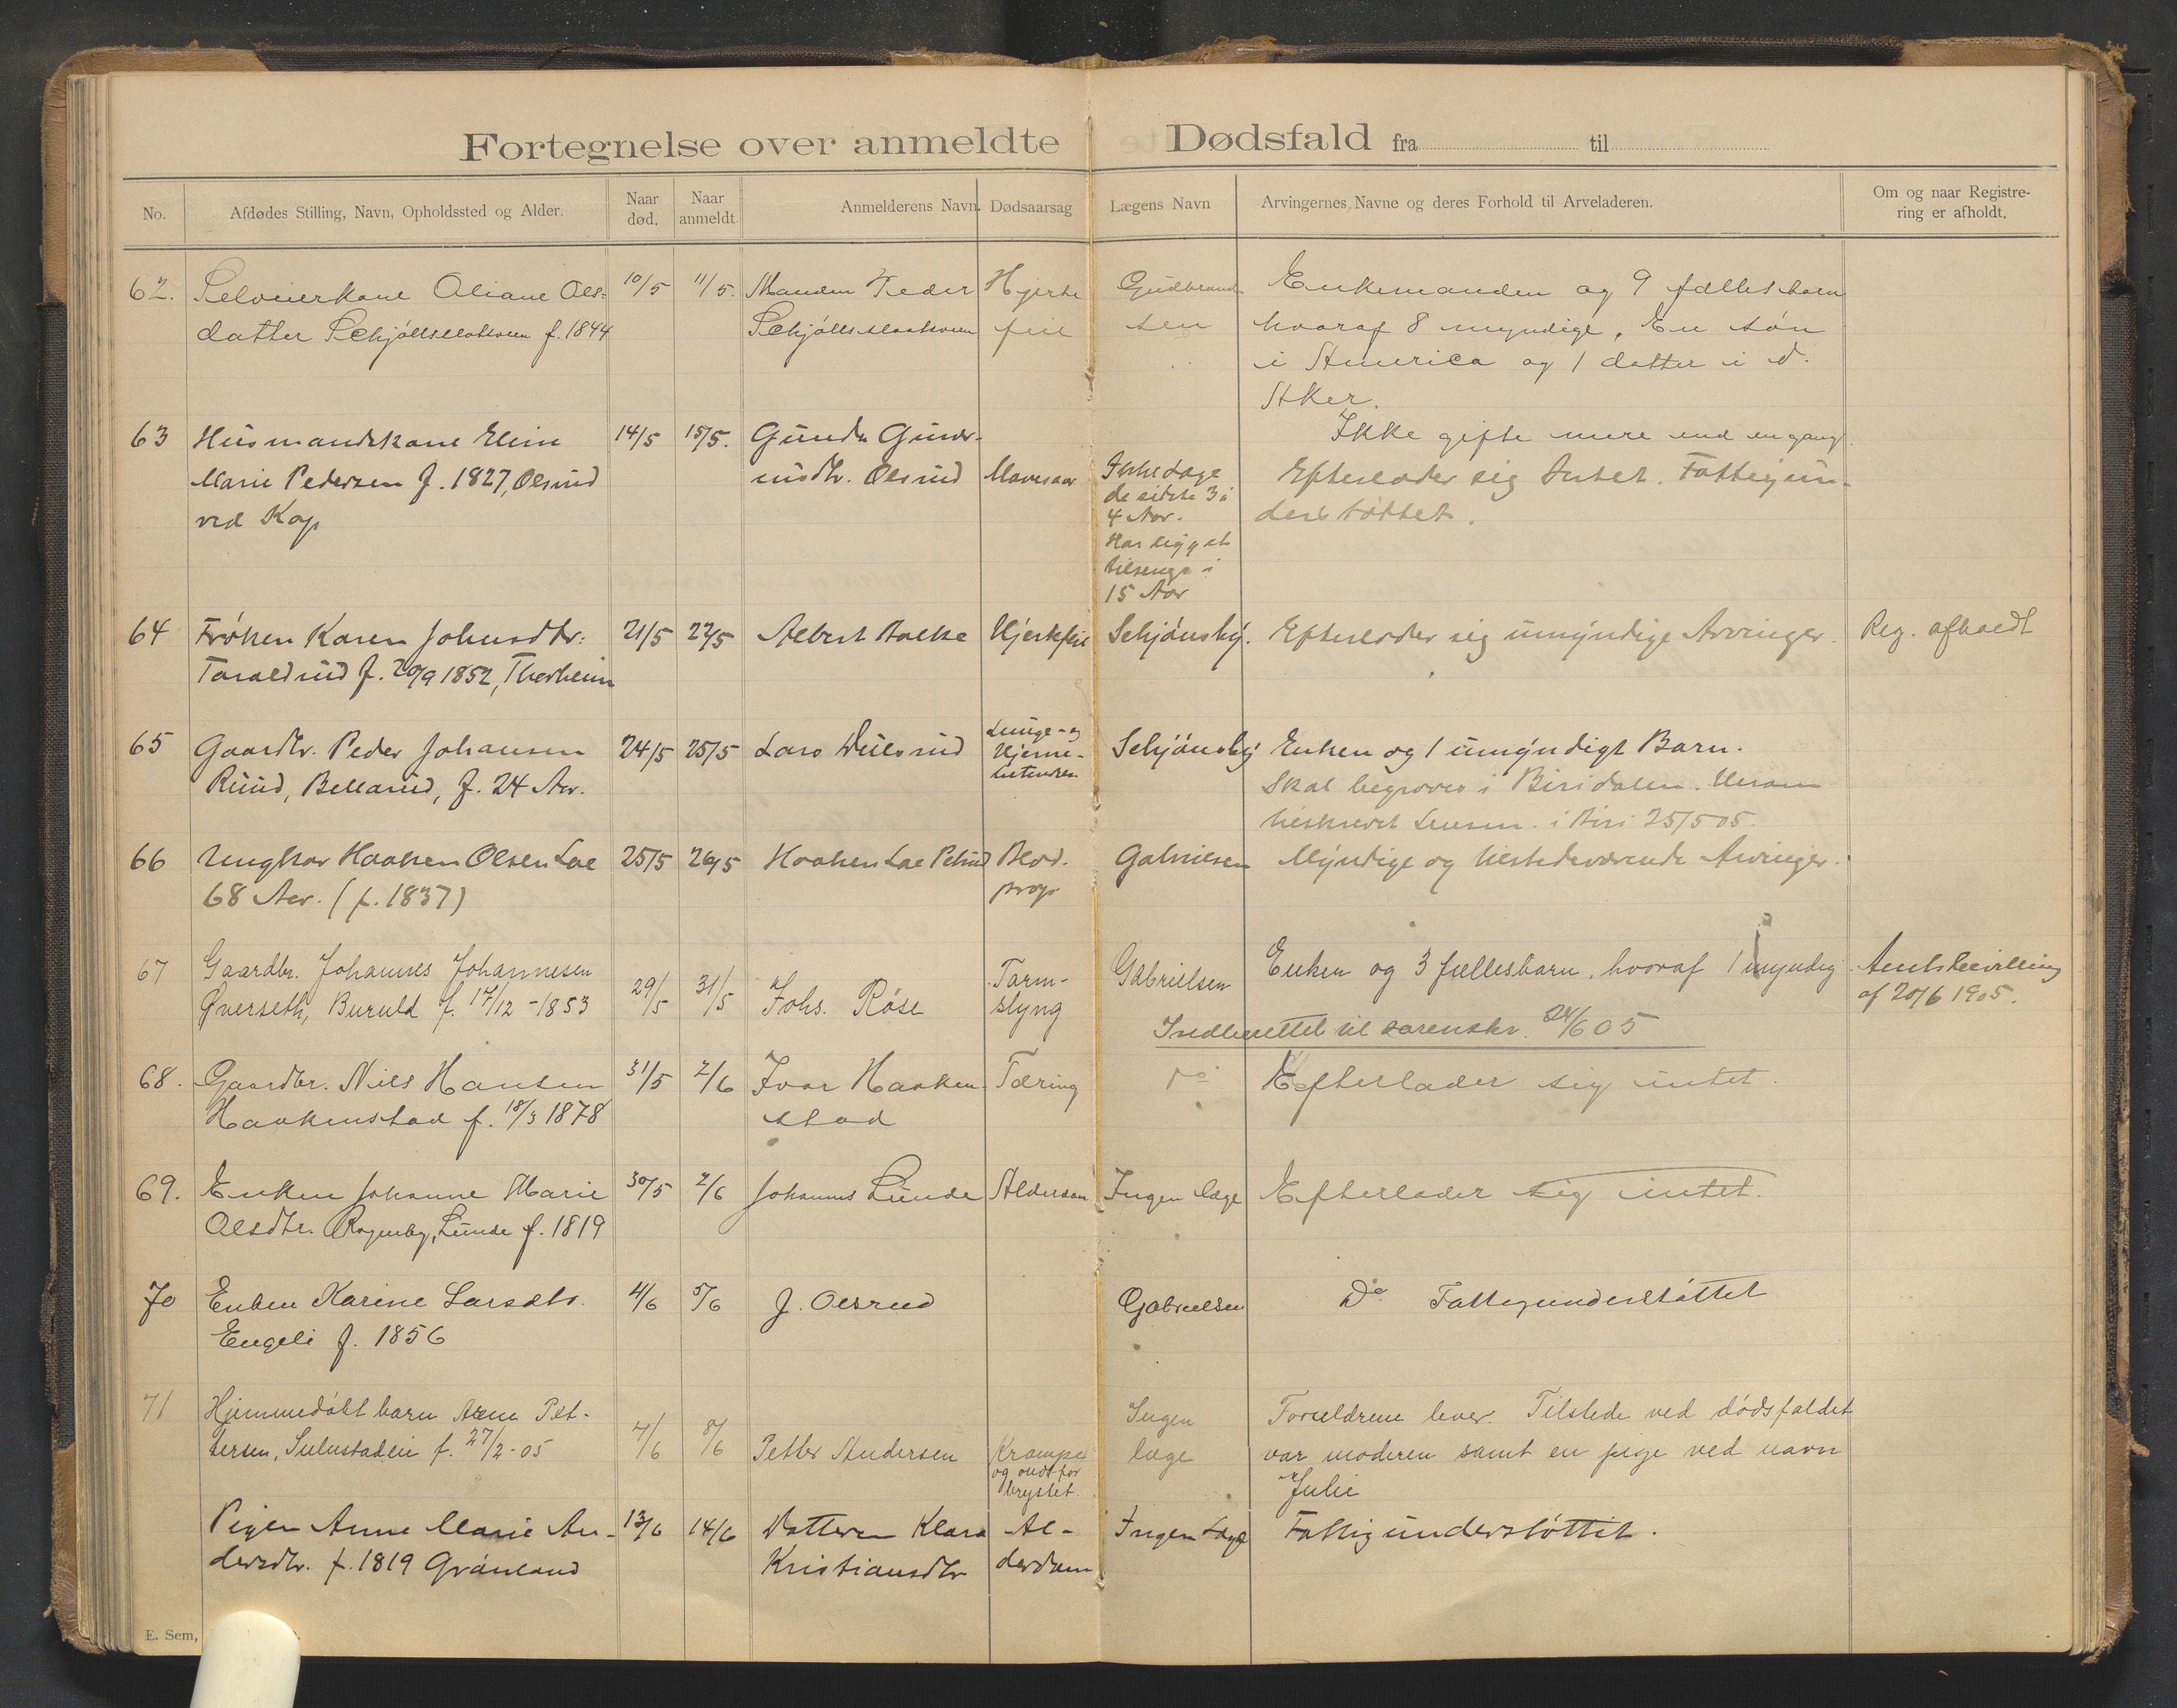 Fortegnelse over anmeldte Dødsfald fra til
No.
Afdødes Stilling, Navn, Opholdssted og Alder.
Naar død.
Naar anmeldt.
Anmelderens Navn.
Dødsaarsag
Lægens Navn
Arvingernes Navne og deres Forhold til Arveladeren.
Om og naar Registre-
ring er afholdt.
62. Selveierkone Oliane Ols- 10/5 11/5. Manden Peder Hjerte Gudbrand- Enkemanden og 9 fællesbarn
datter f. 1844 feil sen hvoraf 8 myndige, En søn
i America og 1 datter i V.
Aker.
Ikke gifte mere end en gang.
63 Husmandskone Eline 14/5 15/5. Gunda Gunder-
Marie Pedersen f. 1827, Olsrud nsdtr. Olsrud Mavesaar Ikke Læge Efterlader sig Intet. Fattigun-
ved Kap de sidste 3 à derstøttet.
4 Aar.
Har ligget
tilsengs i
15 Aar
64 Frøken Karen Johnsdtr. 21/5 22/5 Albert Balke Hjertefeil Schjønsby. Efterlader sig umyndige Arvinger. Reg. afholdt
Taraldrud f. 20/9 1852,
65 Gaardbr. Peder Johansen 24/5 25/5 Lars Lunge- og Hjerne- Schjønsby Enken og 1 umyndigt Barn.
Ruud, Bellarud, f. 24 Aar. Skal begraves i Biridalen. Herom
tilskrevet Lensm. i Biri 25/5 05.
66 Ungkar Haaken Olsen Lae 25/5 26/5 Haaken Lae Blod- Gabrielsen Myndige og tilstedeværende Arvinger.
68 Aar. (f. 1837) prop
67 Gaardbr. Johannes Johannesen 29/5 31/5 Johs. Røse Tarm- Gabrielsen Enken og 3 fællesbarn, hvoraf 1 myndig Amtsbevilling
Øverseth, Buruld f. 17/12-1853 slyng af 20/6 1905.
Indberettet til sorenskr. 24/6 05
68. Gaardbr. Niels Hansen 31/5 2/6 Ivar Haaken- Tæring Do Efterlader sig intet.
Haakenstad f. 18/3 1878 stad
69. Enken Johanne Marie 30/5 2/6 Johannes Lunde Alderdom Ingen læge Efterlader sig intet.
Olsdtr. Lunde f. 1819
70 Enken Karine Larsdtr. 4/6 5/6 J. Olsrud Gabrielsen Do Fattigunderstøttet
Engeli f. 1856
71 Hjemmedøbt barn Arne Pet- 7/6 8/6 Petter Andersen Krampe Ingen Forældrene lever. Tilstede ved dødsfaldet
tersen, f. 27/2-05 og ondt for læge var moderen samt en pige ved navn
brystet. Julie
Pigen Anne Marie An- 13/6 14/6 Datteren Klara Al- Ingen Læge Fattigunderstøttet.
dersdtr. f. 1819 Grønland Kristiansdtr derdom
E. Sem,